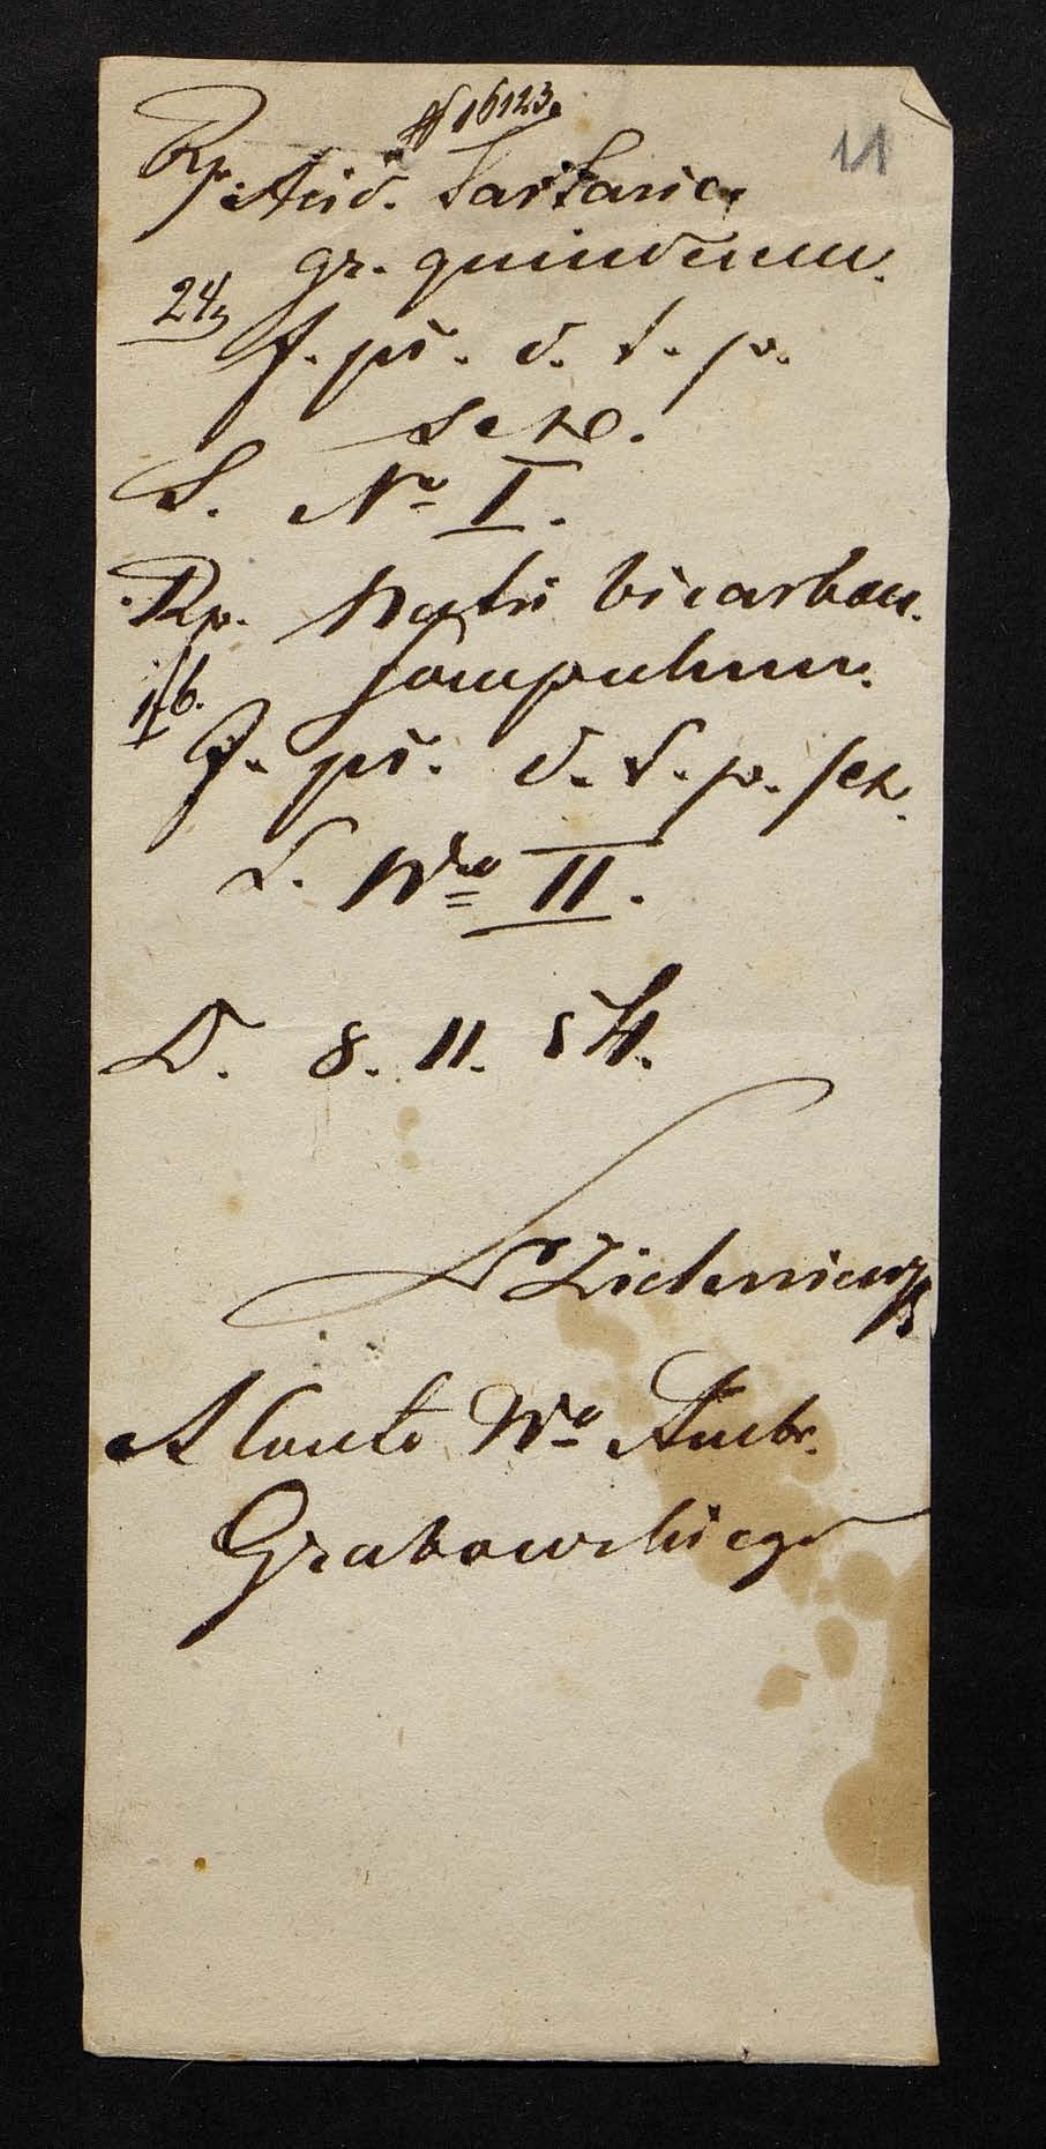 № 16123.
11
Rp. Acid. Tartaric.
gr. quindecim.
24
f. pŭ. d. t. p.
sex.
S. No I.
Rp. Natri bicarbon.
scrupulum.
f. pŭ. d. t. p. sex.
S. Nro II.
D. 8. 11. 54.
Dr
A Conto Wo Ambr.
Grabowskiego